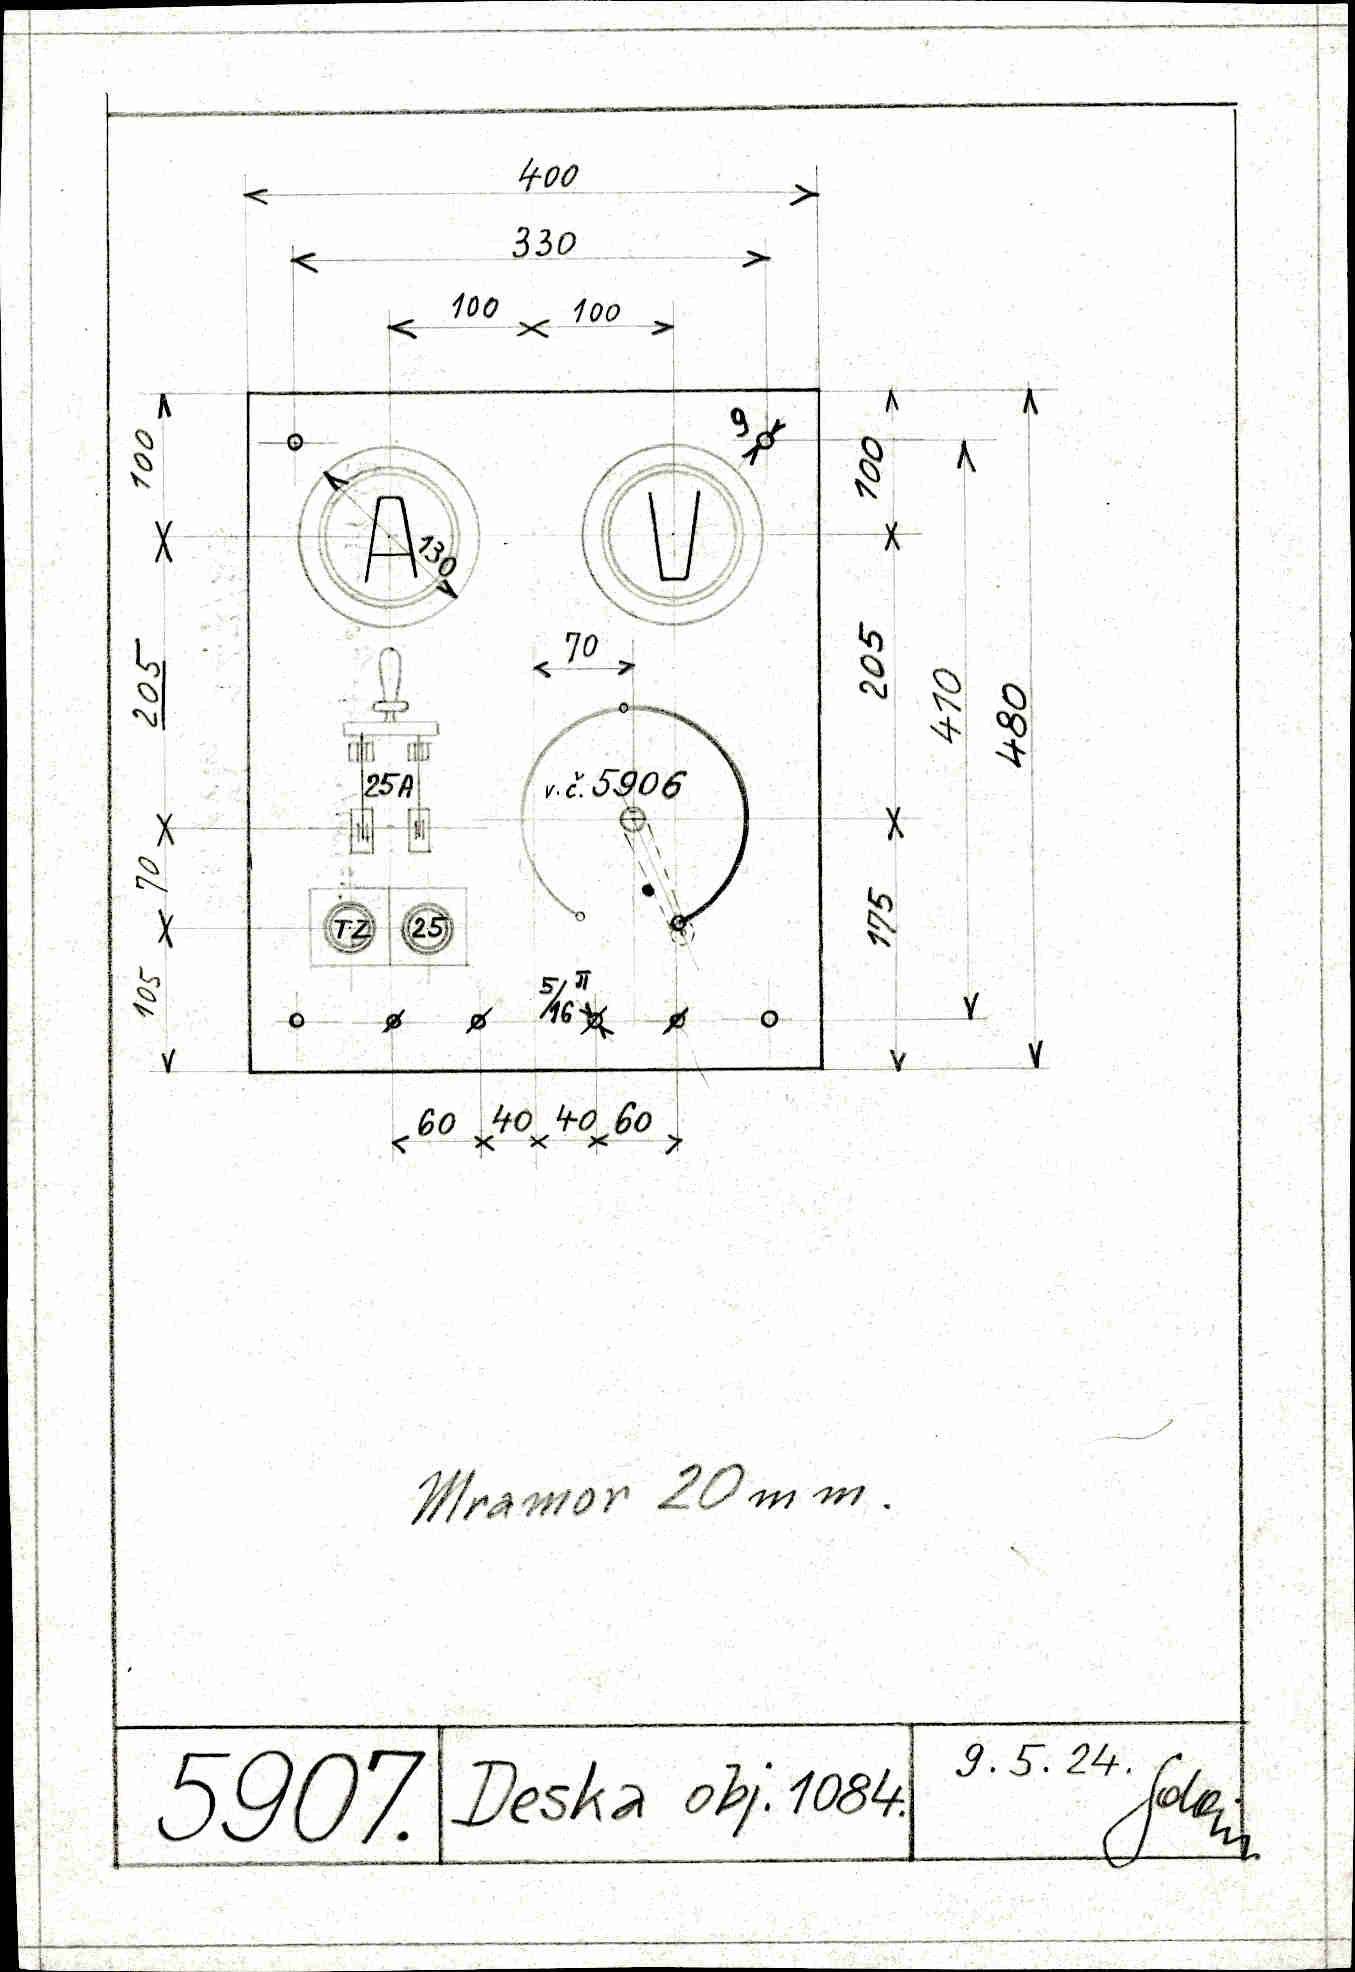 400
330
100 100
9
100
100
A
V
130
205
70
205
410
480
25A
v.č. 5906
70
175
T·Z 25
105
5/16 II
60 40 40 60
Mramor 20 mm.
5907.
Deska obj. 1084.
9. 5. 24.